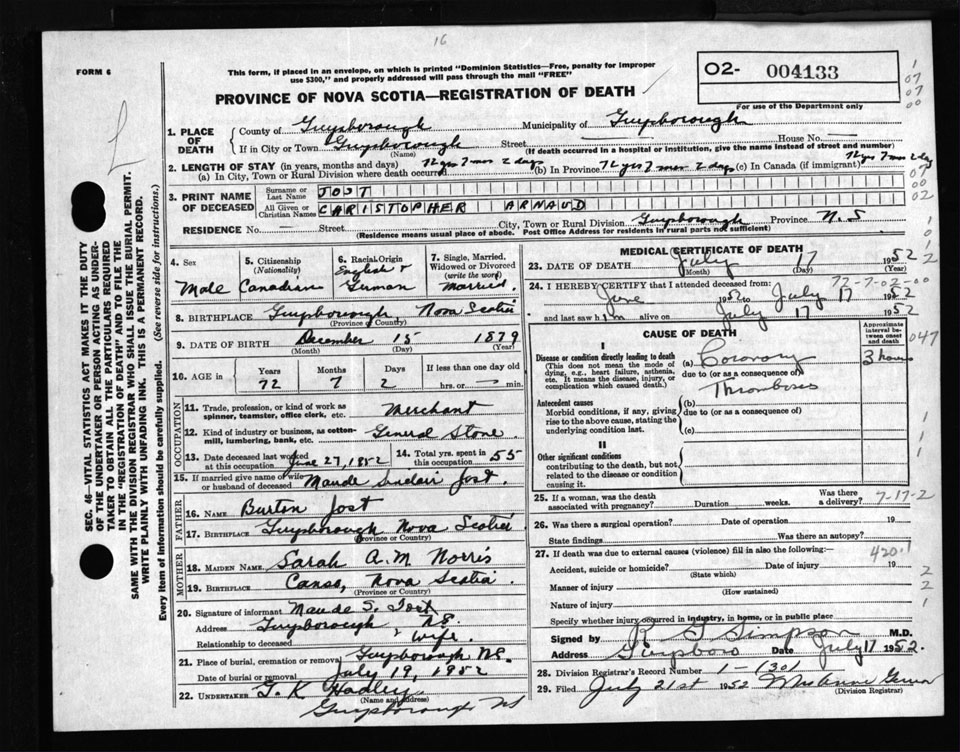 16
FORM 6
This form, if placed in an envelope, on which is printed "Dominion Statistics—Free, penalty for improper
use $300," and properly addressed will pass through the mail "FREE"
O2- 004133
For use of the Department only
PROVINCE OF NOVA SCOTIA—REGISTRATION OF DEATH
1. PLACE OF DEATH
County of Guysborough Municipality of Guysborough
If in City or Town Guysborough Street House No. —
(Name) (If death occurred in a hospital or institution, give the name instead of street and number)
2. LENGTH OF STAY (in years, months and days)
(a) In City, Town or Rural Division where death occurred 72 yrs 7 mos 2 days (b) In Province 72 yrs 7 mos 2 days (c) In Canada (if immigrant) 72 yrs 7 mos 2 days
3. PRINT NAME OF DECEASED
Surname or Last Name JOST
All Given or Christian Names CHRISTOPHER ARNAUD
RESIDENCE No. — Street City, Town or Rural Division Guysborough Province N.S
(Residence means usual place of abode. Post Office Address for residents in rural parts not sufficient)
4. Sex Male
5. Citizenship (Nationality) Canadian
6. Racial Origin English & German
7. Single, Married, Widowed or Divorced (write the word) Married
8. BIRTHPLACE Guysborough Nova Scotia
(Province or Country)
9. DATE OF BIRTH December 15 1879
(Month) (Day) (Year)
10. AGE in Years 72 Months 7 Days 2 If less than one day old hrs. or — min.
OCCUPATION
11. Trade, profession, or kind of work as spinner, teamster, office clerk, etc. Merchant
12. Kind of industry or business, as cotton-mill, lumbering, bank, etc. General Store
13. Date deceased last worked at this occupation June 27, 1952
14. Total yrs. spent in this occupation 55
15. If married give name of wife or husband of deceased Maude Sinclair Jost
FATHER
16. Name Burton Jost
17. Birthplace Guysborough Nova Scotia
(Province or Country)
MOTHER
18. MAIDEN NAME Sarah A.M. Norris
19. BIRTHPLACE Canso, Nova Scotia
(Province or Country)
20. Signature of informant Maude S. Jost
Address Guysborough N.S.
Relationship to deceased Wife
21. Place of burial, cremation or removal Guysborough N.S.
Date of burial or removal July 19, 1952
22. UNDERTAKER G. K Hadley
(Name and Address)
Guysborough N S
MEDICAL CERTIFICATE OF DEATH
23. DATE OF DEATH July 17 1952
(Month) (Day) (Year)
72-7-02-00
24. I HEREBY CERTIFY that I attended deceased from:
June 1952 to July 17 1952
and last saw him alive on July 17 1952
CAUSE OF DEATH
Approximate interval between onset and death
I
Disease or condition directly leading to death
(This does not mean the mode of dying, e.g., heart failure, asthenia, etc. It means the disease, injury, or complication which caused death.)
(a) Coronary 3 hours
due to (or as a consequence of)
Thrombosis
Antecedent causes
Morbid conditions, if any, giving rise to the above cause, stating the underlying condition last.
(b)
due to (or as a consequence of)
(c)
II
Other significant conditions
contributing to the death, but not related to the disease or condition causing it.
25. If a woman, was the death associated with pregnancy? Duration weeks. Was there a delivery? 7-17-2
26. Was there a surgical operation? Date of operation 19
State findings Was there an autopsy?
27. If death was due to external causes (violence) fill in also the following:— 420.1
Accident, suicide or homicide? Date of injury 19
(State which)
Manner of injury
(How sustained)
Nature of injury
Specify whether injury occurred in industry, in home, or in public place
Signed by R G Simpson M.D.
Address Guysboro Date July 17 1952.
28. Division Registrar's Record Number 1-1301
29. Filed July 21st 1952
(Division Registrar)
SEC. 46—VITAL STATISTICS ACT MAKES IT THE DUTY
OF THE UNDERTAKER OR PERSON ACTING AS UNDER-
TAKER TO OBTAIN ALL THE PARTICULARS REQUIRED
IN THE "REGISTRATION OF DEATH" AND TO FILE THE
SAME WITH THE DIVISION REGISTRAR WHO SHALL ISSUE THE BURIAL PERMIT.
WRITE PLAINLY WITH UNFADING INK. THIS IS A PERMANENT RECORD.
Every item of Information should be carefully supplied. (See reverse side for instructions.)
047